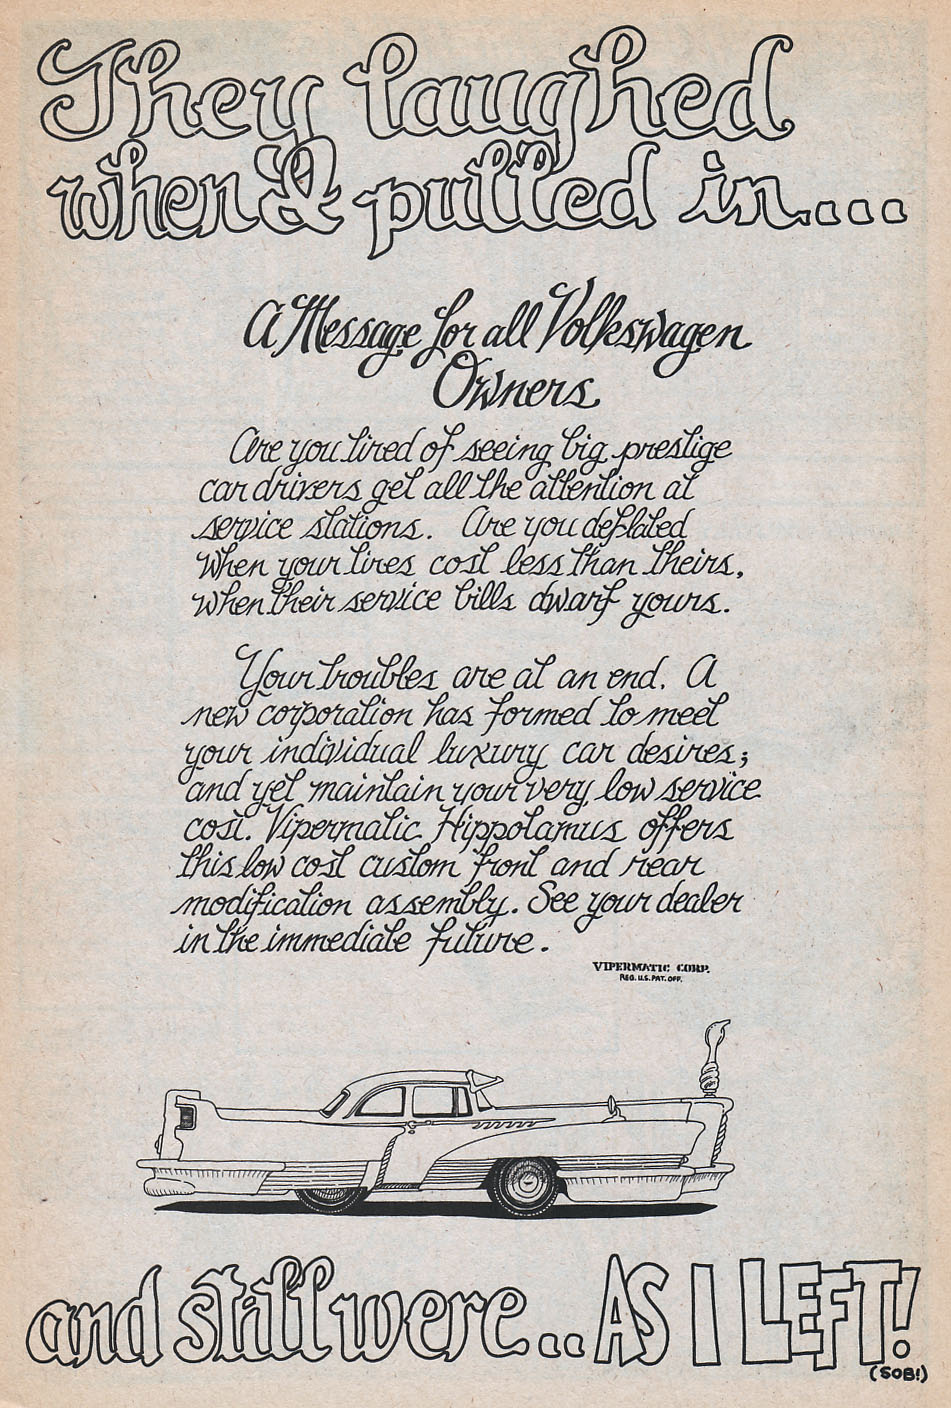 They laughed
when I pulled in....
A Message for all Volkswagen
Owners
Are you tired of seeing big prestige
car drivers get all the attention at
service stations. Are you deflated
when your tires cost less than theirs,
when their service bills dwarf yours.
Your troubles are at an end. A
new corporation has formed to meet
your individual luxury car desires;
and yet maintain your very low service
cost. Vipermatic Hippotamus offers
this low cost custom front and rear
modification assembly. See your dealer
in the immediate future.
VIPERMATIC CORP.
REG. U.S. PAT. OFF.
and still were... AS I LEFT!
(SOB!)